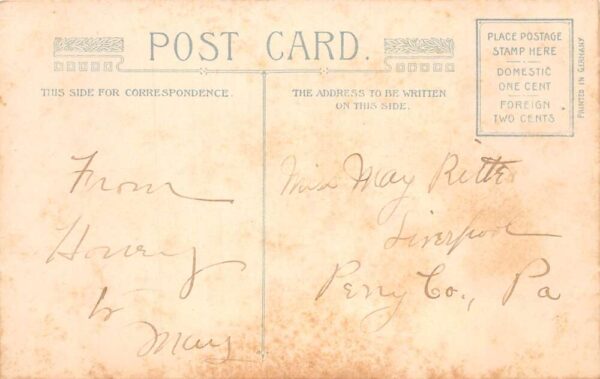 POST CARD.
THIS SIDE FOR CORRESPONDENCE.
THE ADDRESS TO BE WRITTEN
ON THIS SIDE.
PLACE POSTAGE
STAMP HERE
DOMESTIC
ONE CENT
FOREIGN
TWO CENTS
PRINTED IN GERMANY
From
to
Mary
Miss May
Liverpool
Perry Co., Pa